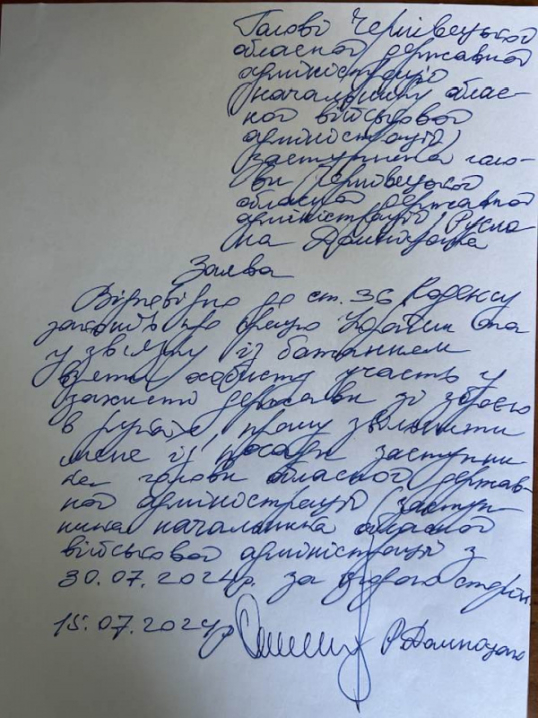 Голові Чернівецької
обласної державної
адміністрації
(начальнику облас-
ної військової
адміністрації)
заступника голо-
ви Чернівецької
обласної державної
адміністрації Русла
на
Заява
Відповідно до ст. 36 Кодексу
законів про працю України та
у зв'язку із бажанням
взяти особисту участь у
захисті держави зі зброєю
в руках, прошу звільнити
мене із посади заступни
ка голови обласної держав-
ної адміністрації (заступ-
ника начальника обласної
військової адміністрації з
30.07.2024р. за угодою сторін
15.07.2024р